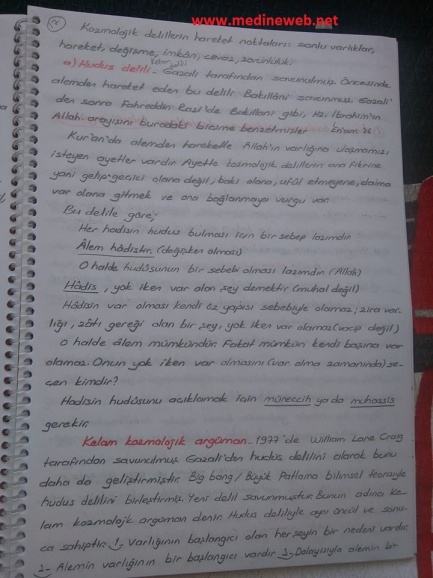 www.medineweb.net
Kozmolojik delillerin hareket noktaları: sonlu varlıklar,
hareket, değişme, imkân, cevaz, zorunluluk
a) Hudus delili - Gazali tarafından savunulmuş. Öncesinde
alemden hareket eden bu delili Bakıllâni savunmuş. Gazali'
den sonra Fahreddin Razi'de Bakıllani gibi, Hz. İbrahim'in
Allah arayışını buradaki biçime benzetmişler. En'am 76
Kur'an'da alemden hareketle Allah'ın varlığına ulaşmamızı
isteyen ayetler vardır. Ayette kozmolojik delillerin ana fikrine
yani gelip-geçici olana değil, baki olana, ufûl etmeyene, daima
var olana gitmek ve ona bağlanmaya vurgu var.
Bu delile göre;
Her hadisin hudus bulması için bir sebep lazımdır.
Âlem hâdistir. (değişken olması)
O halde hudûsunun bir sebebi olması lazımdır. (Allah)
Hâdis, yok iken var olan şey demektir. (muhal değil)
Hâdisin var olması kendi öz yapısı sebebiyle olamaz; zira var-
lığı, zâtı gereği olan bir şey, yok iken var olamaz (vacip değil)
O halde âlem mümkündür. Fakat mümkün kendi başına var
olamaz. Onun yok iken var olmasını (var olma zamanında) se-
çen kimdir?
Hadisin hudûsunu açıklamak için müreccih ya da muhassis
gerekir.
Kelam kozmolojik argüman - 1977'de William Lane Craig
tarafından savunulmuş. Gazali'den hudûs delilini alarak bunu
daha da geliştirmiştir. Big bang / Büyük Patlama bilimsel teorisiyle
hudus delilini birleştirmiş. Yeni delil savunmuştur. Bunun adına ke-
lam kozmolojik argüman denir. Hudus deliliyle aynı öncül ve sonu-
ca sahiptir. 1- Varlığının başlangıcı olan herşeyin bir nedeni vardır.
2- Alemin varlığının bir başlangıcı vardır 3- Dolayısıyla alemin bir